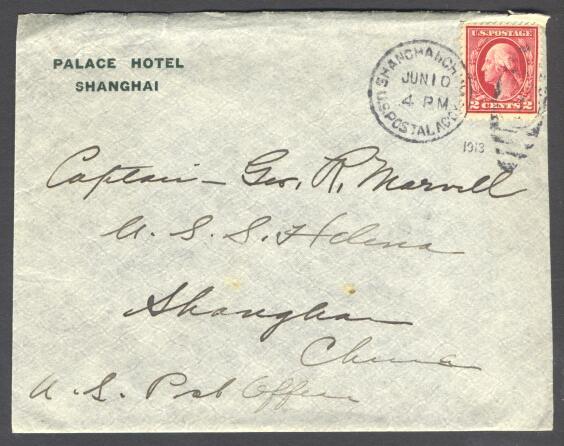 PALACE HOTEL
SHANGHAI
SHANGHAI CH
JUN 10
4 PM
U.S. POSTAL AGCY
U.S. POSTAGE
2 CENTS 2
1913
Captain - Geo. R. Marvell
U. S. S. Helena
Shanghai
China
U. S. Post Office